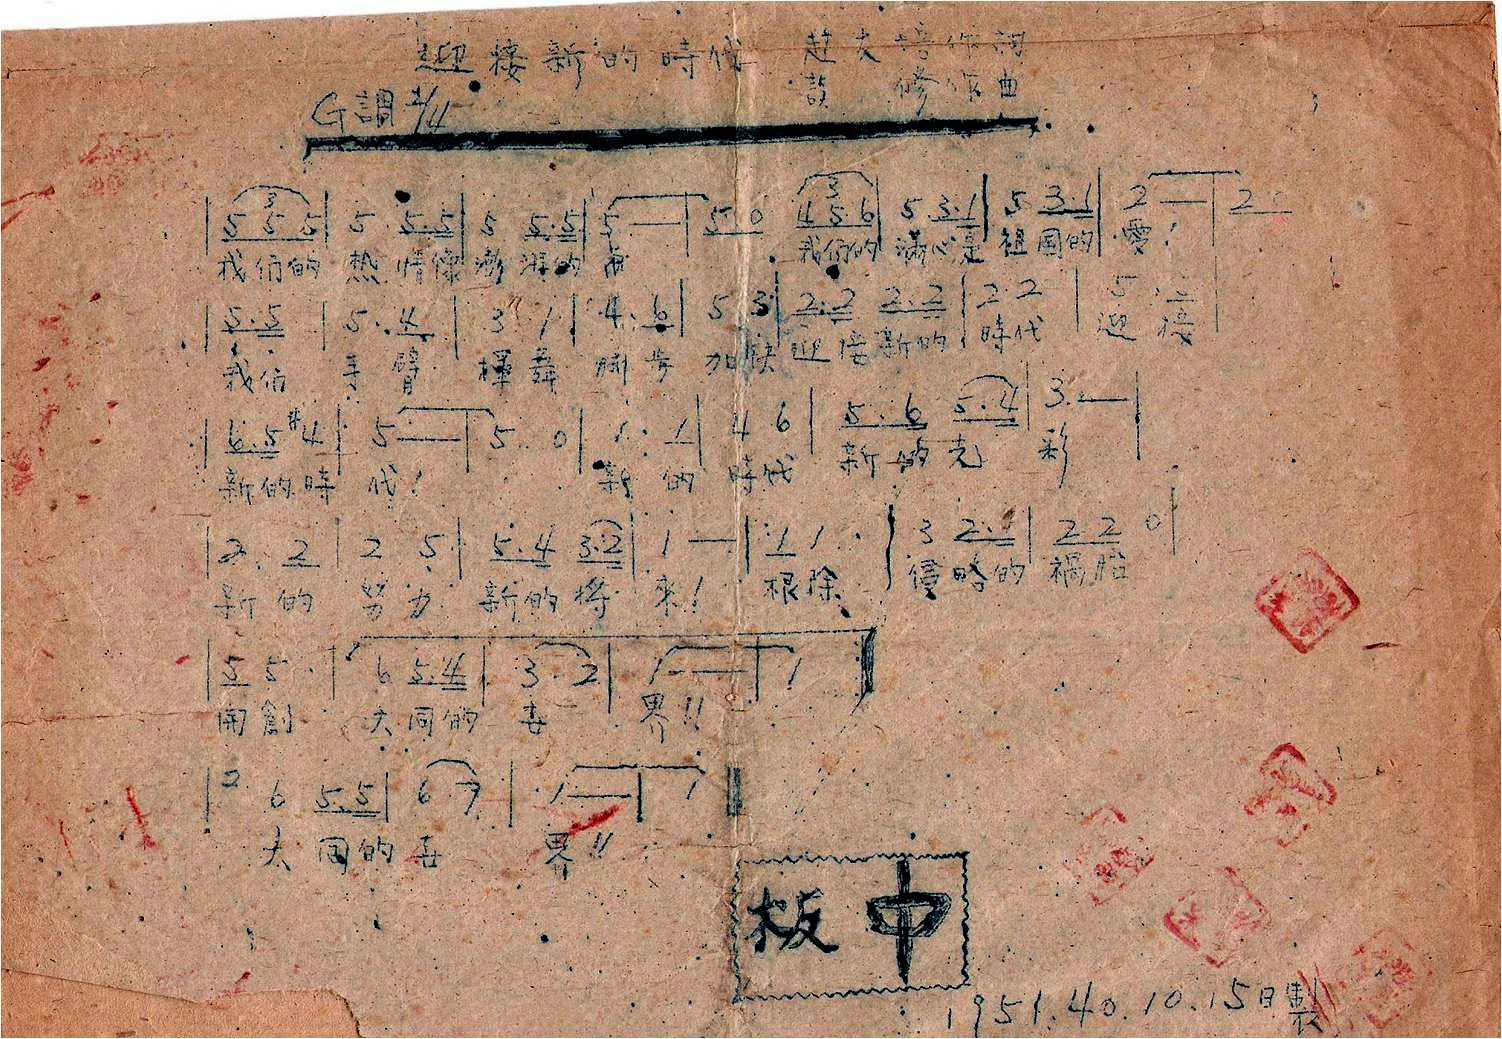 迎接新的時代 趙大培作詞
修作曲
G調 2/4
3 3
5 5 5 | 5 5.5 | 5 5.5 | 5 — | 5 0 4 5.6 | 5 3.1 | 5 3.1 | 2 — | 2
我们的 热 情像澎湃的 我们的 满心是 祖国的 愛!
5.5 | 5.4 | 3 1 | 4.6 | 5 3 | 2.2 2.2 | 2 2 | 5 .2
我们 手臂 揮舞 脚步 加快 迎接新的 時代 迎接
6.5 #4 | 5 — | 5 0 | 1.1 | 4 6 | 5.6 5.4 | 3 — |
新的時 代! 新的 時代 新的光 彩
2.2 | 2 5 | 5.4 3.2 | 1 — | 1 1 | 3 2.1 | 2 2 0 |
新的 努力 新的将 来! 根除 侵略的 禍胎
5 5 | 6 5.4 | 3.2 | 1 — | 1
開創 大同的 世 界!!
2 6 5.5 | 6 7 | 1 — | 1
大同的世 界!!
板中
1951.40.10.15日製